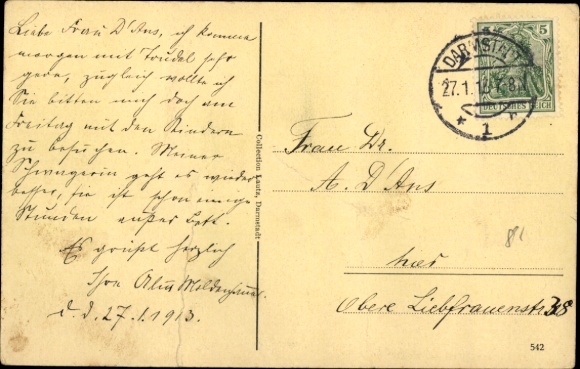 Liebe Frau D'Ans, ich komme
morgen mit Trudel sehr
gern, zugleich wollte ich
Sie bitten mich doch am
Freitag mit den Kindern
zu besuchen. Meiner
Schwägerin geht es wieder
besser, sie ist schon einige
Stunden außer Bett.
Es grüßt herzlich
Ihre Moldenhauer
d. d. 27.1.1913.
Collection Lautz, Darmstadt
DARMSTADT
27.1.13
1
5
DEUTSCHES REICH
Frau Dr.
A. D'Ans
hier
Obere Liebfrauenstr. 38
542